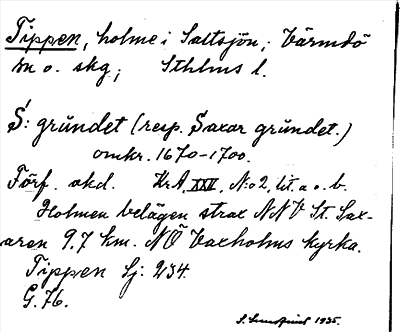 Tippen, holme i Saltsjön; Värmdö
sn o. skg; Sthlms l.
S: grŭndet (resp. Saxar grŭndet.)
omkr. 1670-1700.
Förf. okd. KrA, XXV, N:o 2, lit. a o. b.
Holmen belägen strax NNV St. Sax-
aren 9,7 km. NÖ Vaxholms kyrka.
Tippen Sj: 234.
G. 76.
1935.